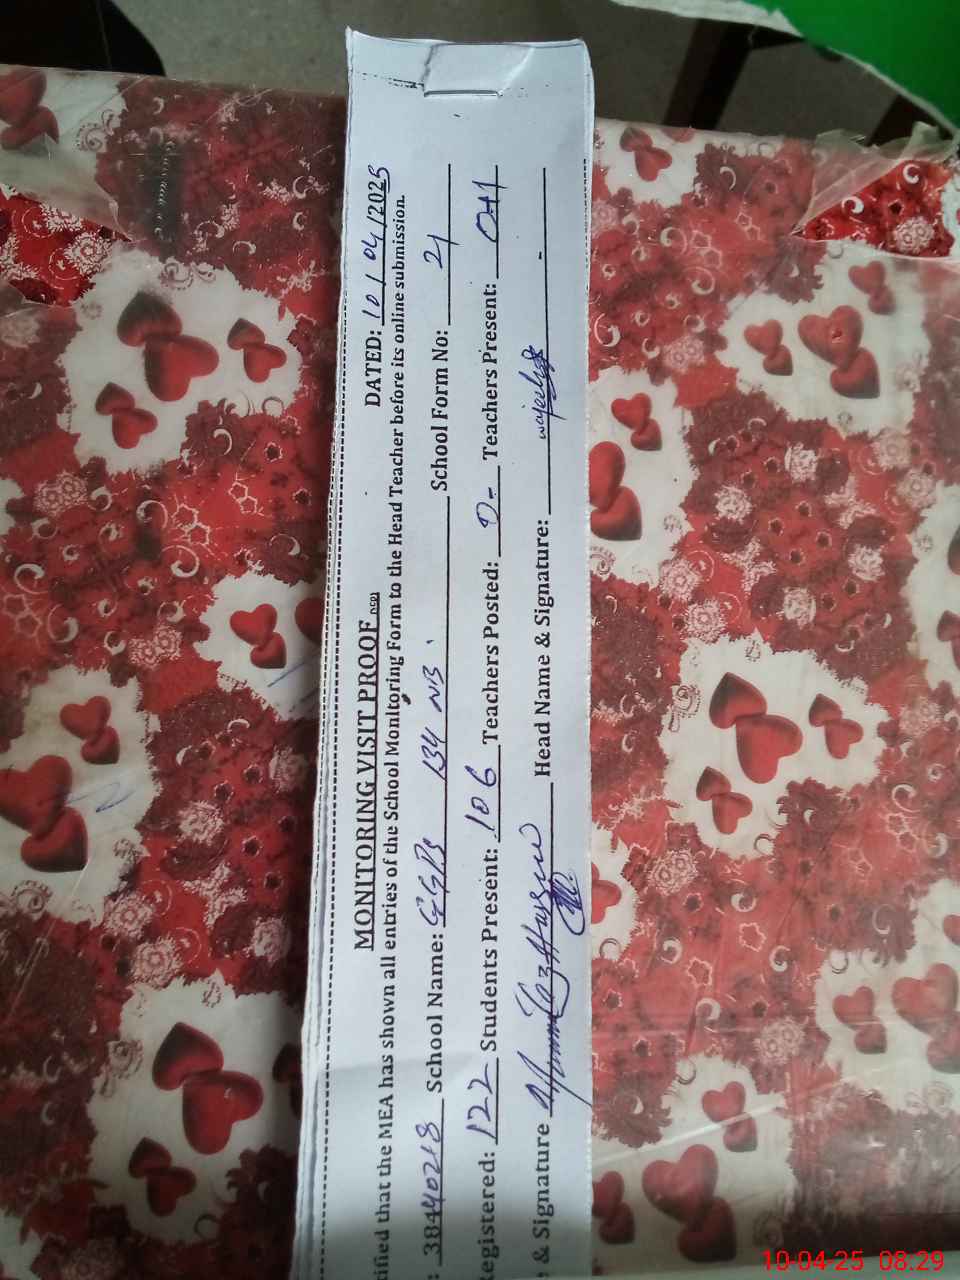 MONITORING VISIT PROOF DATED: 10/04/2025
tified that the MEA has shown all entries of the School Monitoring Form to the Head Teacher before its online submission.
: 38440218 School Name: GGPS 134 NB. School Form No: 21
Registered: 122 Students Present: 106 Teachers Posted: 0- Teachers Present: 0+1
& Signature Head Name & Signature: wajeeha
10-04-25 08.29